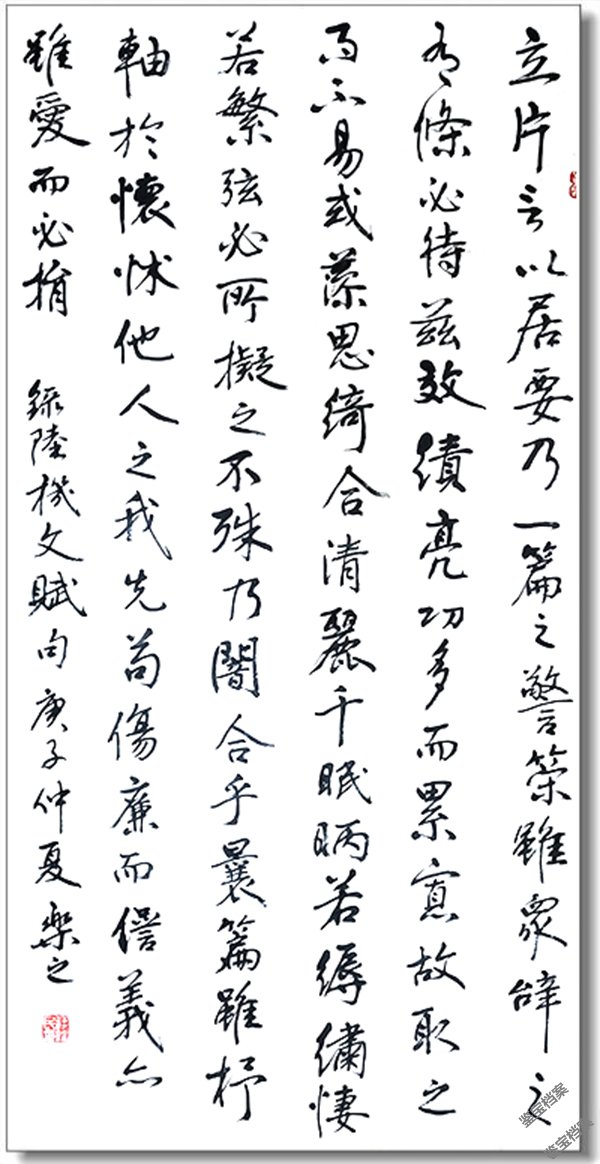 立片言以居要乃一篇之警策雖眾辭之
有條必待茲效績亮功多而累寡故取足
而不易或藻思綺合清麗千眠昞若縟繡悽
若繁弦必所擬之不殊乃闇合乎曩篇雖杼
軸於懷怵他人之我先苟傷廉而愆義亦
雖愛而必捐 錄陸機文賦句庚子仲夏樂之
鉴宝档案
鉴宝档案